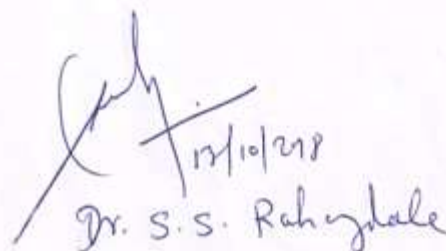 13/10/218
Dr. S. S. Rahangdale